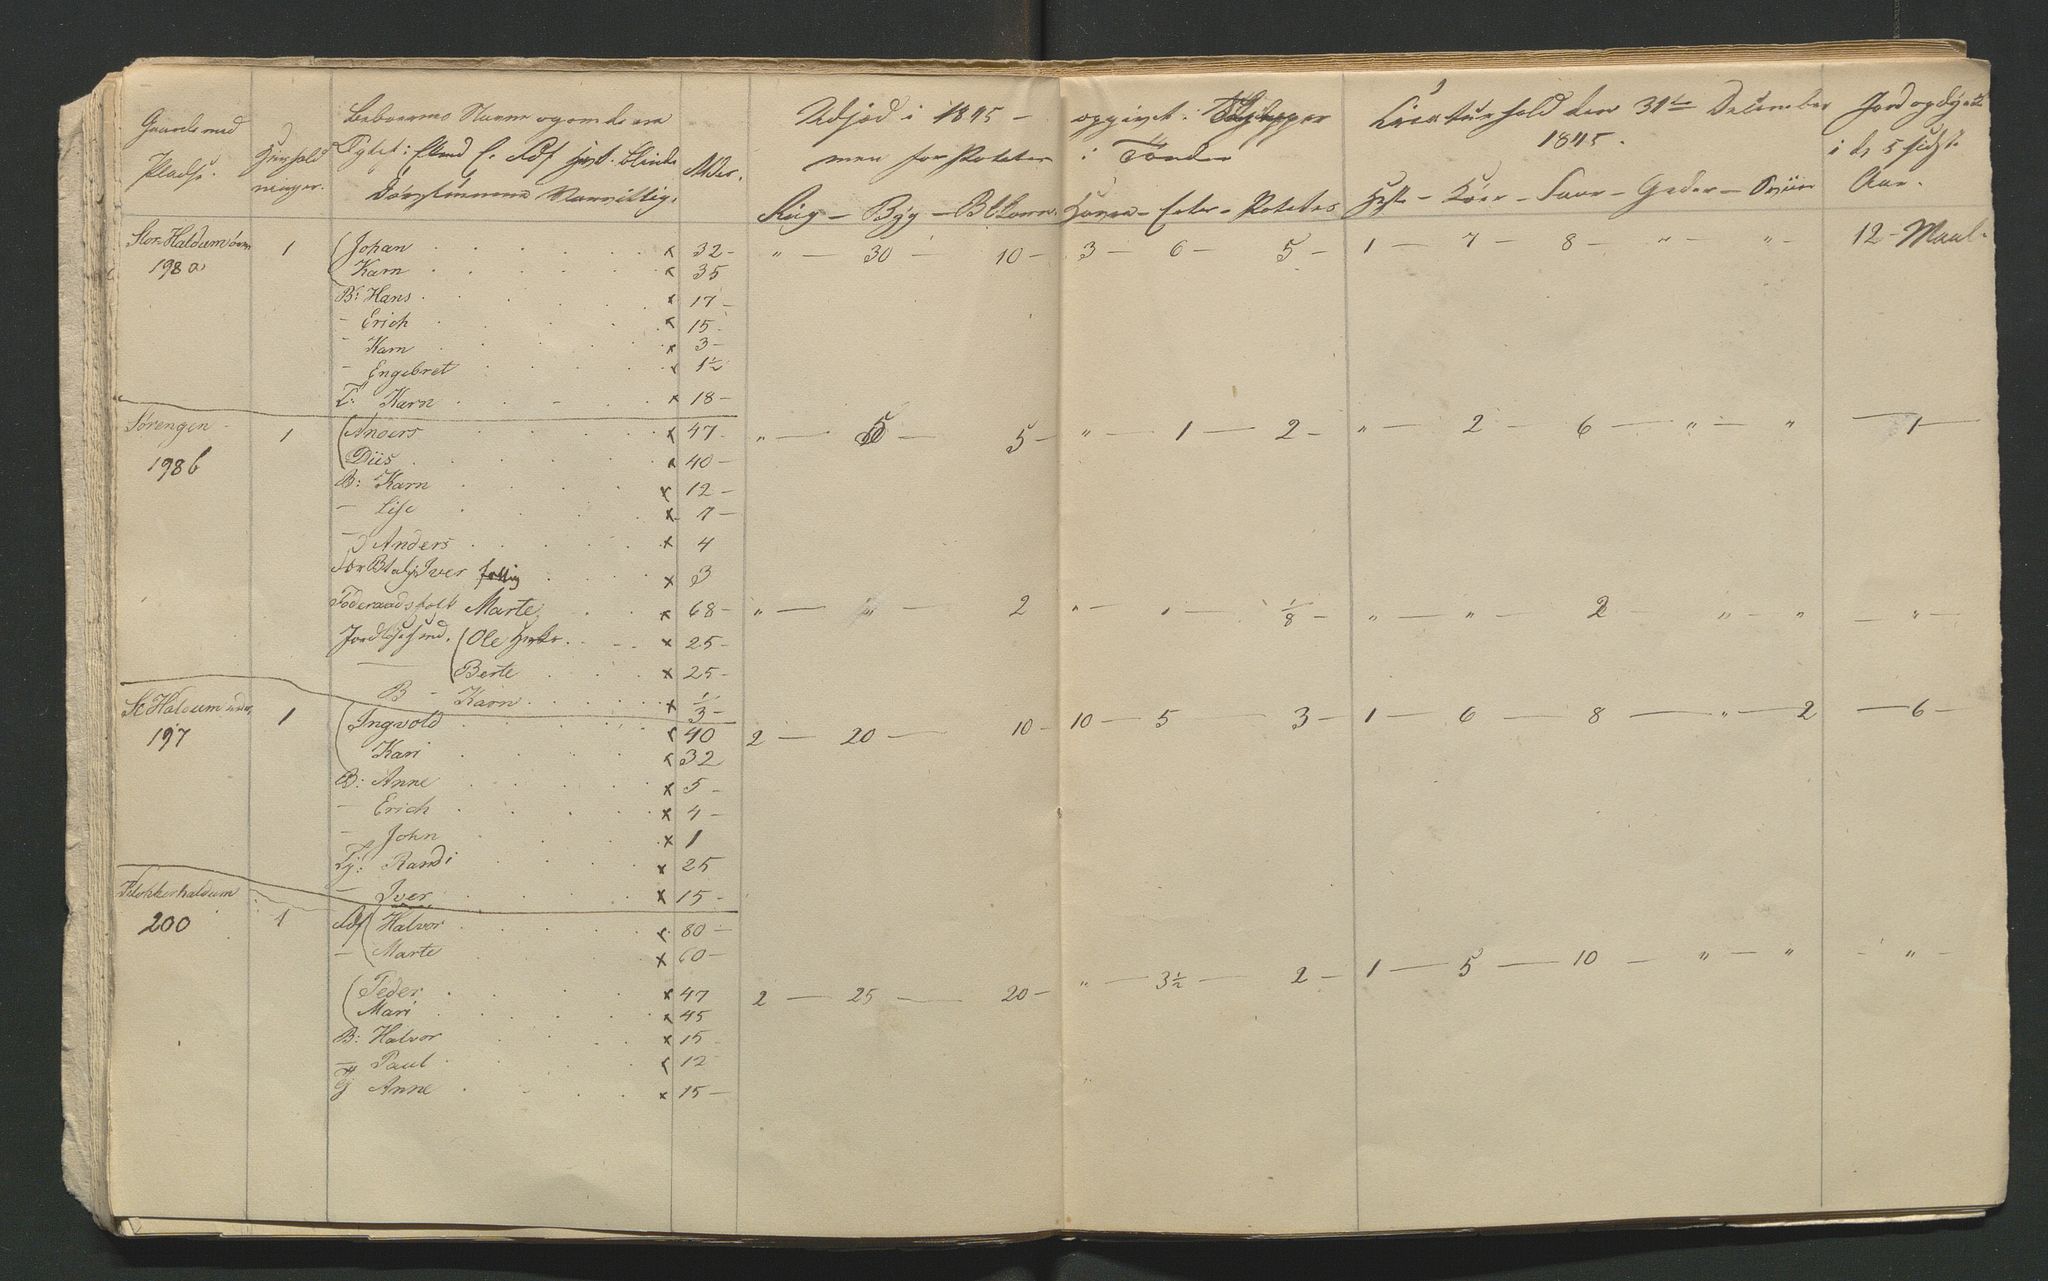 Gaarde med Pladse.
Huushold ninger.
Beboernes Navne og om de ere
Døvstumme Vanvittig.
Alder.
Udsæd i 1845 – opgivet i
men for Poteter i Tønder
Rüg – Byg – Bl Korn Havre – Erter – Poteter
Creaturhold den 31te December
1845.
Heste – Köer – Faar – Geder – Sviin
Jord opdyrket
i de 5 sidste
Aar.
Stor Haldum övre 1 Johan x 32 – „ — 30 — 10 – 3 – 6 – 5 – 1 — 7 – 8 – „ – „ – 12 – Maal –
198 a Karn x 35
B: Hans x 17 –
– Erich x 15 –
– Karn x 3 –
– Engebret x 1½
T: Karn x 18 –
Sørengen 1 Anders x 47 – „ — 5 — 5 – „ — 1 — 2 – „ — 2 — 6 — „ — „ — 1 —
198 b Diis x 40 –
B: Karn x 12 –
– Lise x 7 –
– Anders x 4
Iver x 3
Föderaadsfolk Marte x 68 – „ — „ — 2 – „ — „ — 1/8 – „ — „ — 2 — „ – „ — „ –
Ole x 25 –
— Berte x 25 –
B – Karn x 1/3 –
St Haldum 1 Ingvold x 40 2 — 20 — 10 – 10 — 5 — 3 – 1 — 6 — 8 — „ — 2 — 6 –
197 Kari x 32
B: Anne x 5 –
– Erich x 4 –
– John x 1
Ty: Randi x 25
– Iver x 15 –
Klokkerhaldum 1 Halvor x 80 –
200 – Marte x 60 –
Peder x 47 2 — 25 — 20 – „ — 3½ — 2 – 1 — 5 — 10 — „ — „ – „ –
Mari x 45
B: Halvor x 15
– Paul x 12
G Anne x 15 –